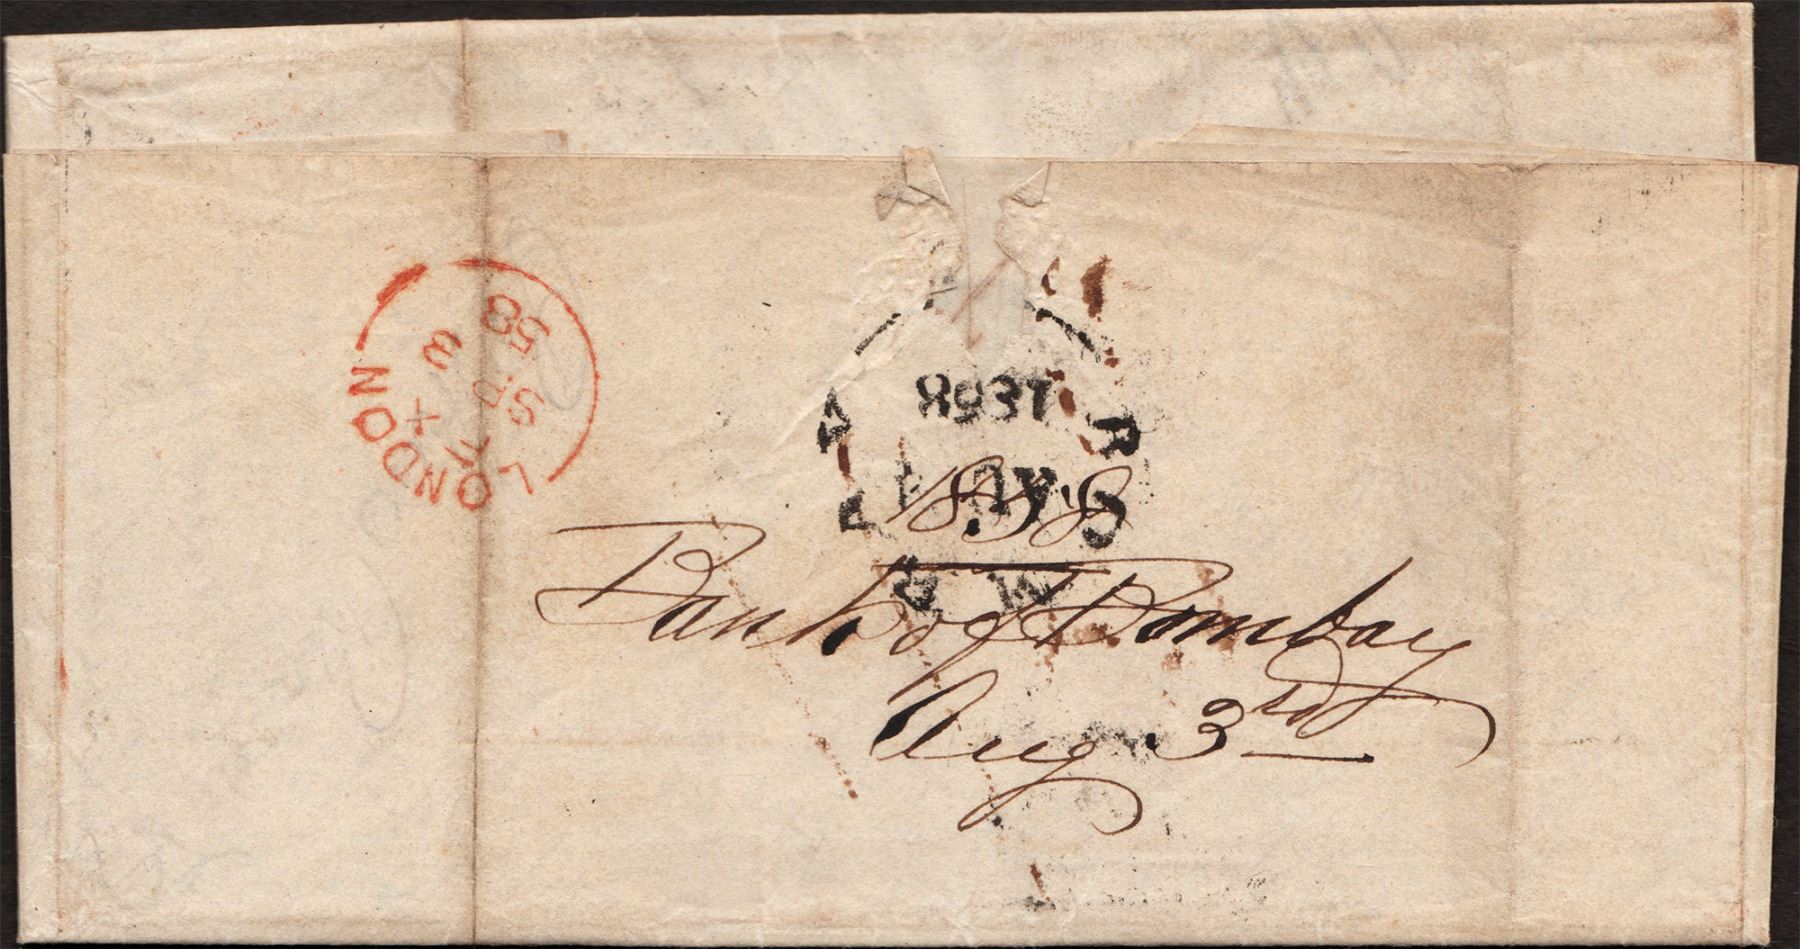 LONDON
X
SP 3
58
1858
AU
1858
Bank of Bombay
Aug 3rd